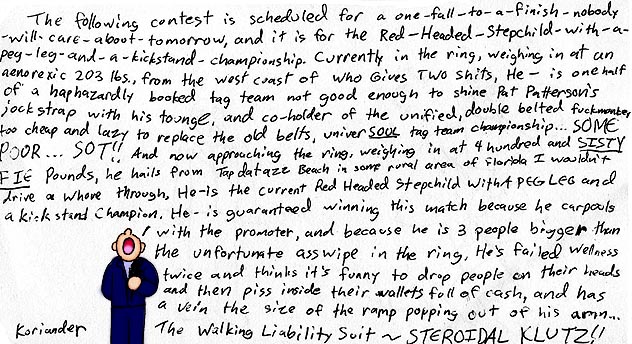 The following contest is scheduled for a one-fall-to-a-finish-nobody
-will-care-about-tomorrow, and it is for the Red-Headed-Stepchild-with-a-
peg-leg-and-a-kickstand-championship. Currently in the ring, weighing in at an
aenorexic 203 lbs., from the west coast of who Gives TWO shits, He- is one half
of a haphazardly booked tag team not good enough to shine Pat Patterson's
jock strap with his tounge, and co-holder of the unified, double belted fuckmonkey
too cheap and lazy to replace the old belts, univer SOUL tag team championship... SOME
POOR... SOT!! And now approaching the ring, weighing in at 4 hundred and SISTY
FIE Pounds, he hails from Tapdataze Beach in some rural area of Florida I wouldn't
drive a whore through, He-is the current Red Headed Stepchild WITH A PEG LEG and
a kick stand Champion. He- is guaranteed winning this match because he carpools
with the promoter, and because he is 3 people bigger than
the unfortunate asswipe in the ring, He's failed wellness
twice and thinks it's funny to drop people on their heads
and then piss inside their wallets full of cash, and has
a vein the size of the ramp popping out of his arm...
The Walking Liability Suit ~ STEROIDAL KLUTZ!!
Koriander